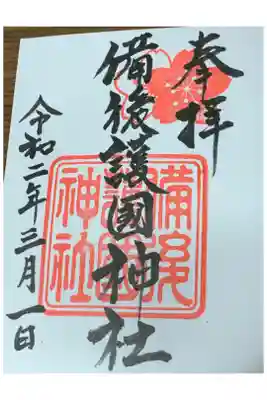 奉拝
備後護國神社
備後護國神社
令和二年三月一日